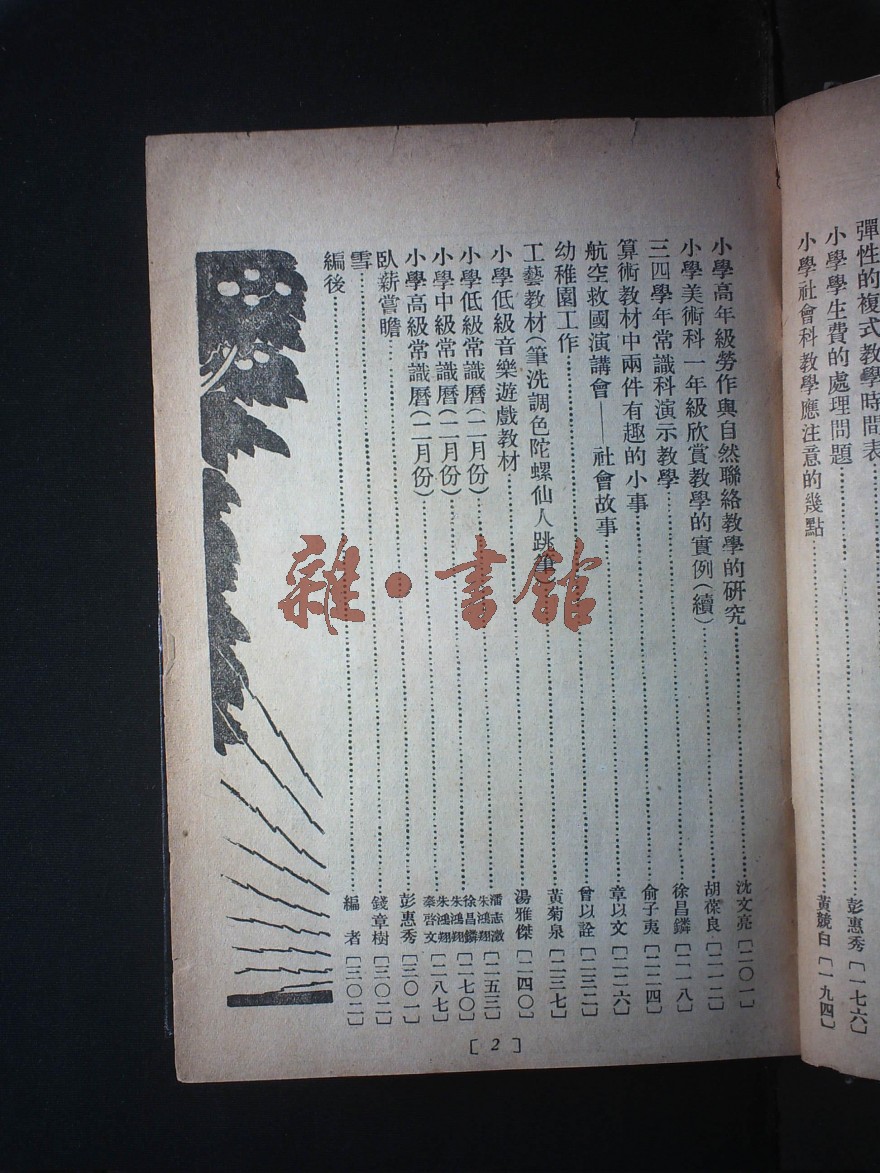 彈性的複式教學時間表
小學學生費的處理問題……彭惠秀[一七六]
小學社會科教學應注意的幾點……黃競白[一九四]
小學高年級勞作與自然聯絡教學的研究……沈文亮[二〇一]
小學美術科一年級欣賞教學的實例(續)……胡葆良[二一二]
三四學年常識科演示教學……徐昌鏻[二一八]
算術教材中兩件有趣的小事……俞子夷[二二四]
航空救國演講會——社會故事……章以文[二二六]
幼稚園工作……曾以詮[二三二]
工藝教材(筆洗調色陀螺仙人跳筆)……黃菊泉[二三七]
小學低級音樂遊戲教材……湯雅傑[二四〇]
小學低級常識曆(二月份)……潘志澂 朱鴻翔[二五三]
小學中級常識曆(二月份)……徐昌鏻 朱鴻翔[二七〇]
小學高級常識曆(二月份)……朱鴻翔 秦啓文[二八七]
臥薪嘗瞻……彭惠秀[三〇一]
雪……錢章樹[三〇二]
編後……編者[三〇二]
[2]
雜·書館